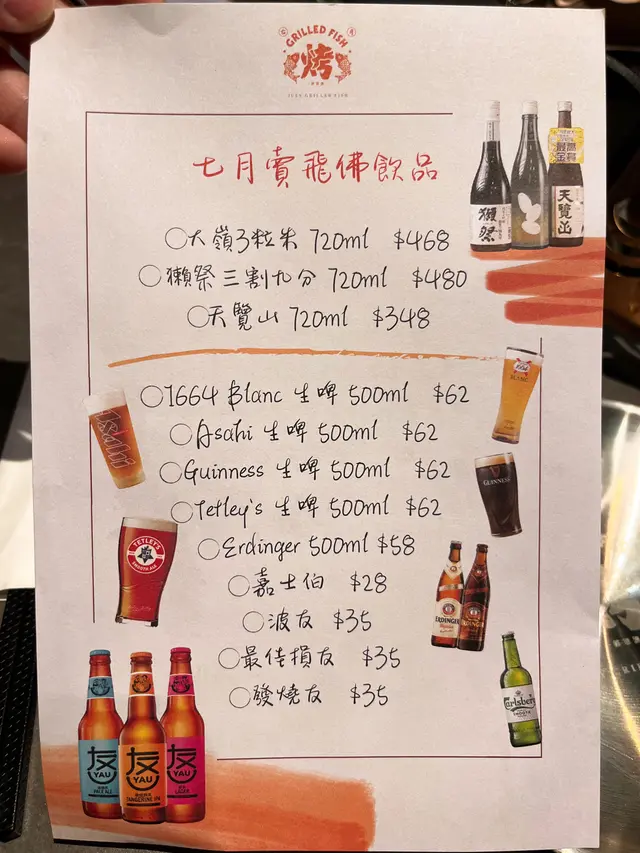 GRILLED FISH
烤
七月賣飛佛飲品
大嶺3粒米 720ml $468
獺祭三割九分 720ml $480
天覽山 720ml $348
1664 Blanc 生啤 500ml $62
Asahi 生啤 500ml $62
Guinness 生啤 500ml $62
Tetley's 生啤 500ml $62
Erdinger 500ml $58
嘉士伯 $28
波友 $35
最佳損友 $35
發燒友 $35
獺祭
天覽山
1664
BLANC
Asahi
GUINNESS
TETLEY'S
SMOOTH ALE
ERDINGER
Carlsberg
友
YAU
PALE ALE
友
YAU
TANGERINE IPA
友
YAU
LAGER